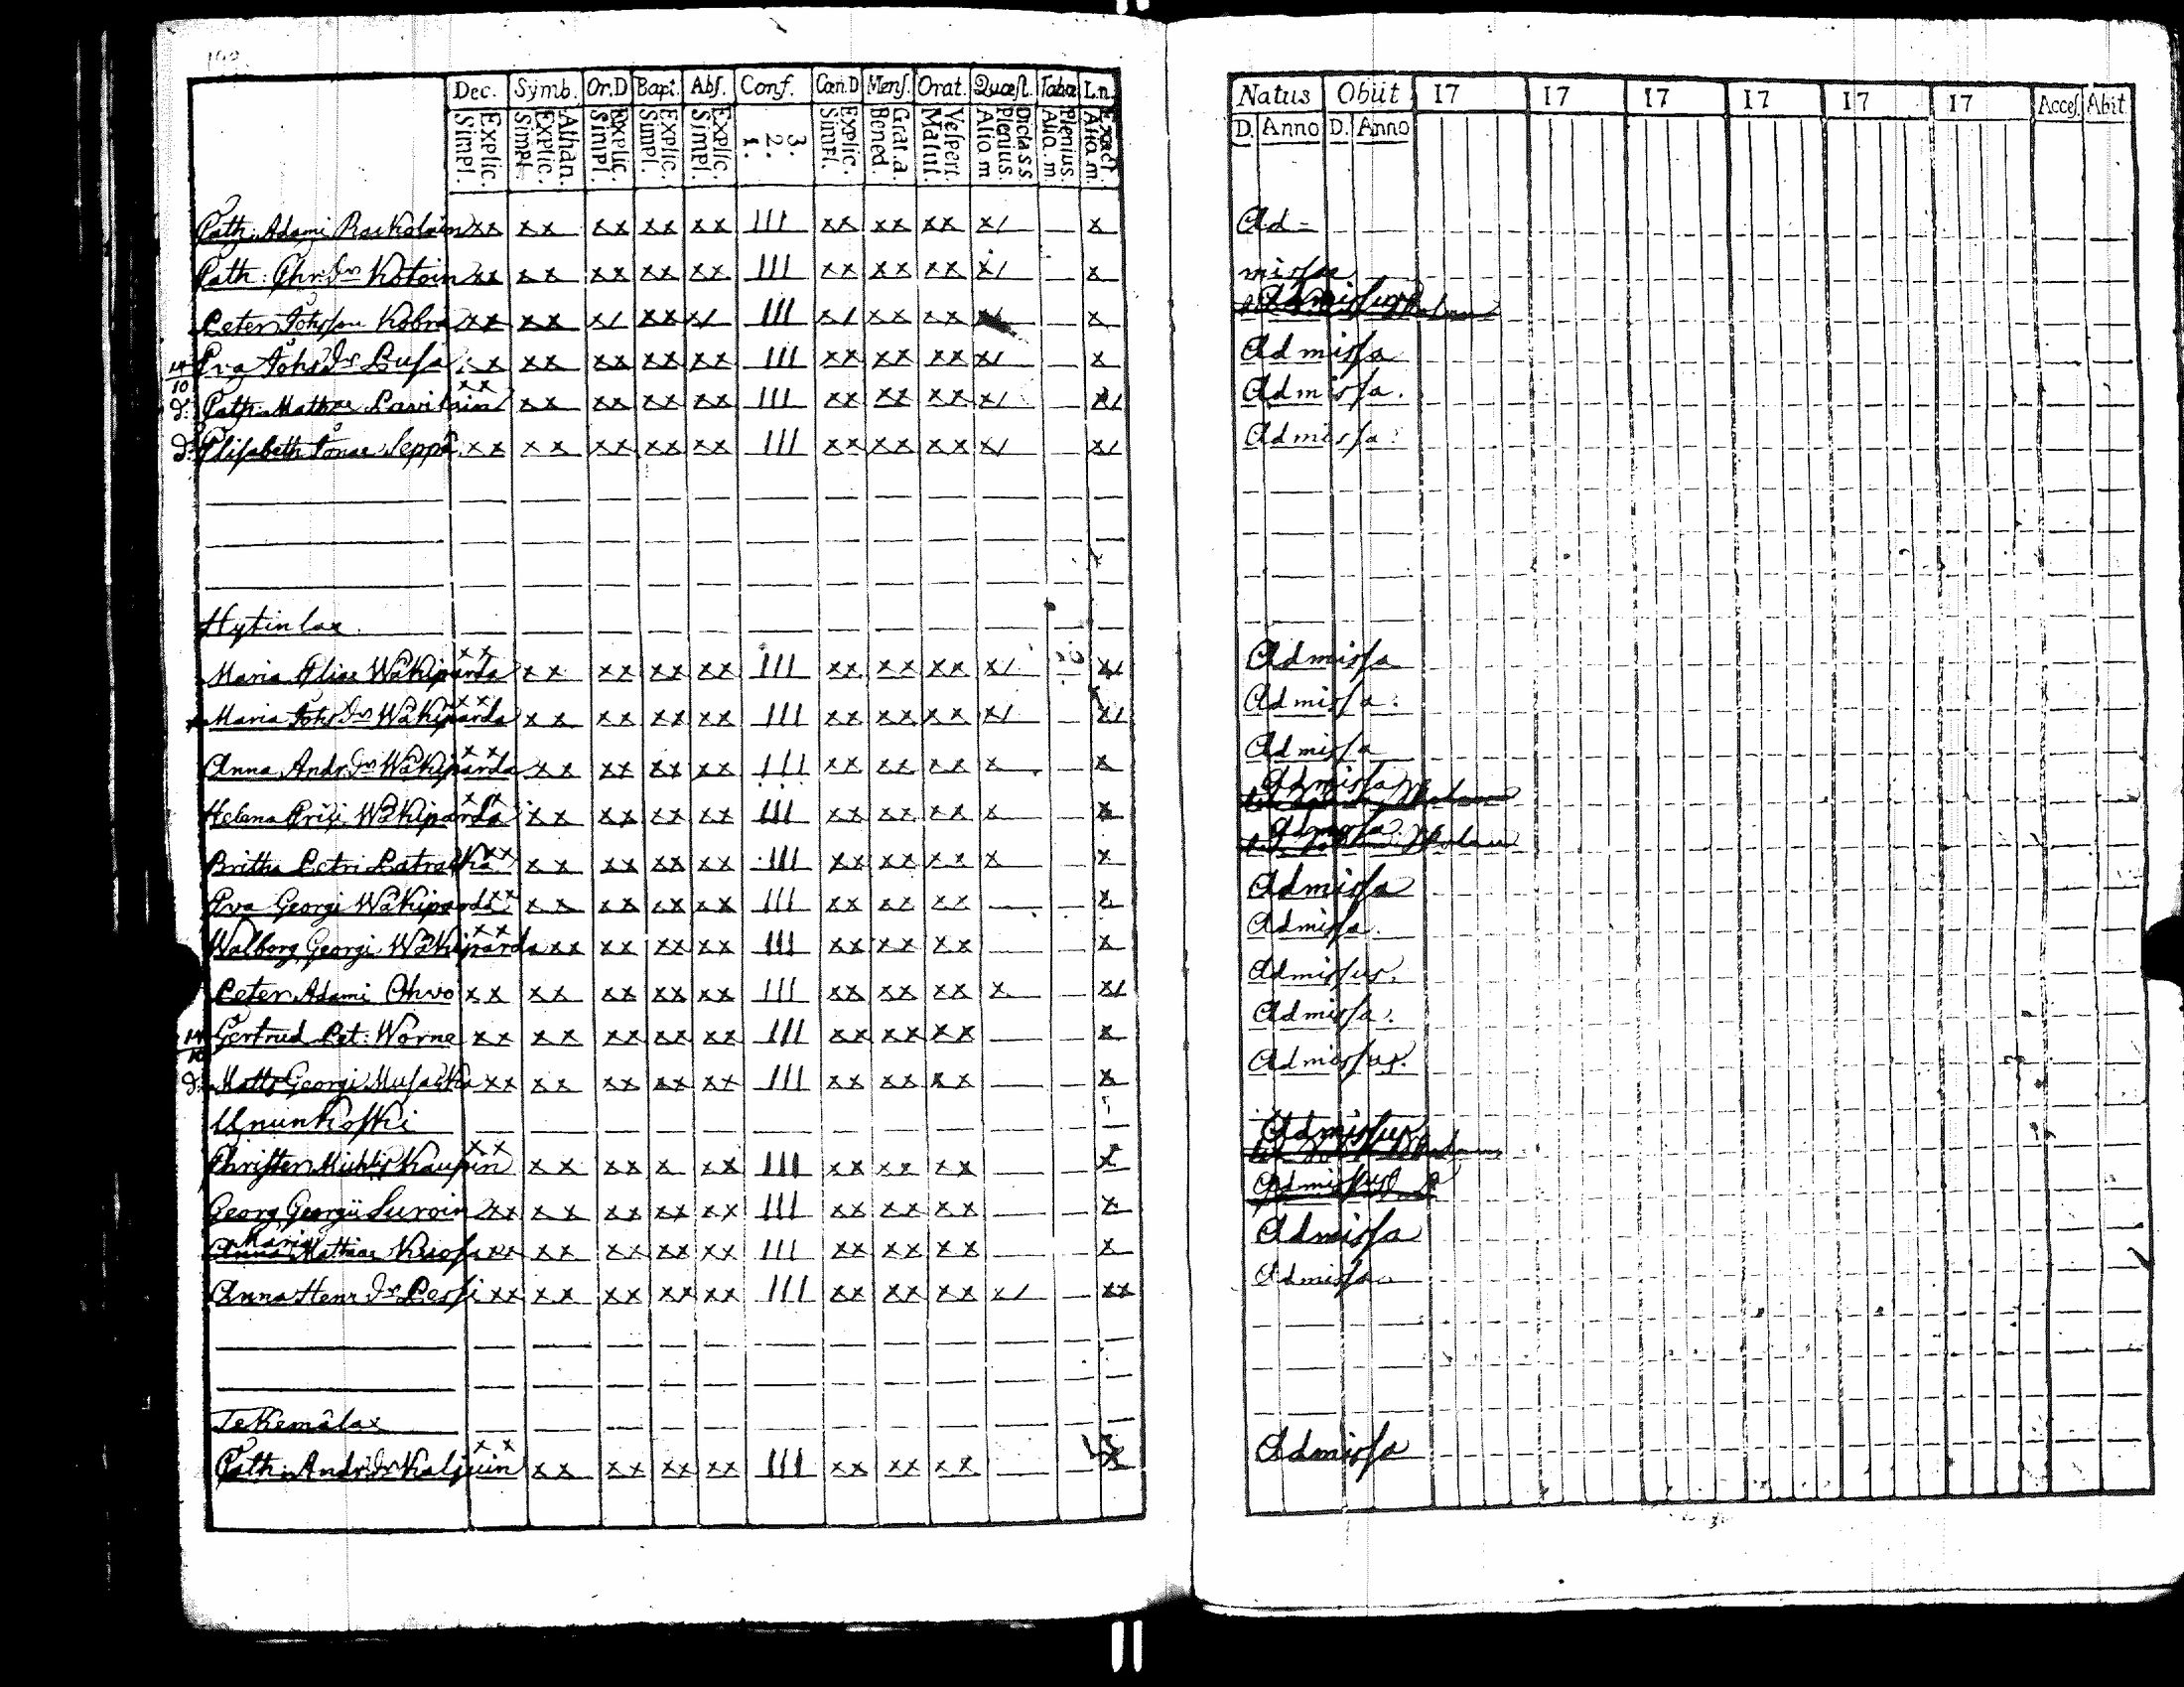 Dec. Symb. Or.D Bapt. Abs. Conf. Cœn.D Mens. Orat. Quæst. Tabæ L.n.
Explic. Simpl. Athan. Explic. Simpl. Explic. Simpl. Explic. Simpl. Explic. Simpl. 3. 2. 1. Explic. Simpl. Grat. a. Bened. Vespert. Matut. Dicta s s Plenius. Alio. m Plenius. Alio. m Exact. Alio. m.
Cath. Adami xx xx xx xx xx III xx xx xx x/ x
Cath. Chr. Dr Kotoin xx xx xx xx xx III xx xx xx x/ x
Peter Kobra xx xx x/ xx x/ III x/ xx xx x
Eva Johs Dr Busa xx xx xx xx xx III xx xx xx x/ x
Cath. Mathiæ xx xx xx xx xx III xx xx xx x/ x/
Elisabeth Jonæ Seppä xx xx xx xx xx III xx xx xx x/ x/
Hytinlax.
Maria Eliæ Wäkiparda xx xx xx xx xx III xx xx xx x/ x/
Maria Johs Dr Wäkiparda xx xx xx xx xx III xx xx xx x/ x/
Anna Andr. Dr Wäkiparda xx xx xx xx xx III xx xx xx x x
Helena Erici Wäkiparda xx xx xx xx xx III xx xx xx x x
Britha Petri xx xx xx xx xx III xx xx xx x x
Eva Georgi Wäkiparda xx xx xx xx xx III xx xx xx x
Walborg Georgi Wäkiparda xx xx xx xx xx III xx xx xx x
Peter Adami Ohvo xx xx xx xx xx III xx xx xx x x/
14/10 Gertrud Pet. Worne xx xx xx xx xx III xx xx xx x
Matts Georgi xx xx xx xx xx III xx xx xx x
Ununkoski
Christer Kaupin xx xx xx x xx III xx xx xx x
Georg Georgii Suroin xx xx xx xx xx III xx xx xx x
Maria
Anna Mathiæ xx xx xx xx xx III xx xx xx x
Anna Henr Dr Pessi xx xx xx xx xx III xx xx xx x/ xx
Tekemälax
Cath. Andr. Dr Kaljuin xx xx xx xx xx III xx xx xx x
Natus Obiit 17 17 17 17 17 17 Acces. Abit
D. Anno D. Anno
Ad=
missa
Admissus
Admissa
Admissa.
Admissa.
Admissa
Admissa.
Admissa
Admissa
Admissa.
Admissa
Admissa.
Admissus.
Admissa.
Admissus.
Admissus
Admissus
Admissa
Admissa
Admissa